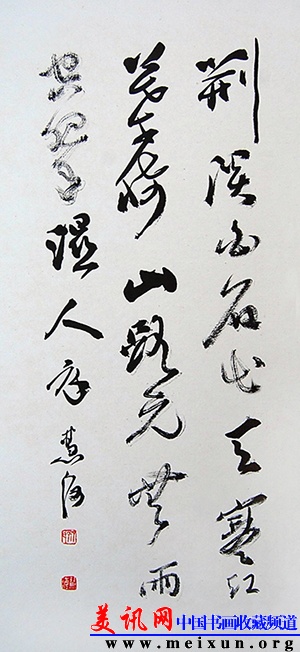 荆溪白石出天寒红
葉稀山路元無雨
空翠濕人衣
美讯网 中国书画收藏频道
www.meixun.org